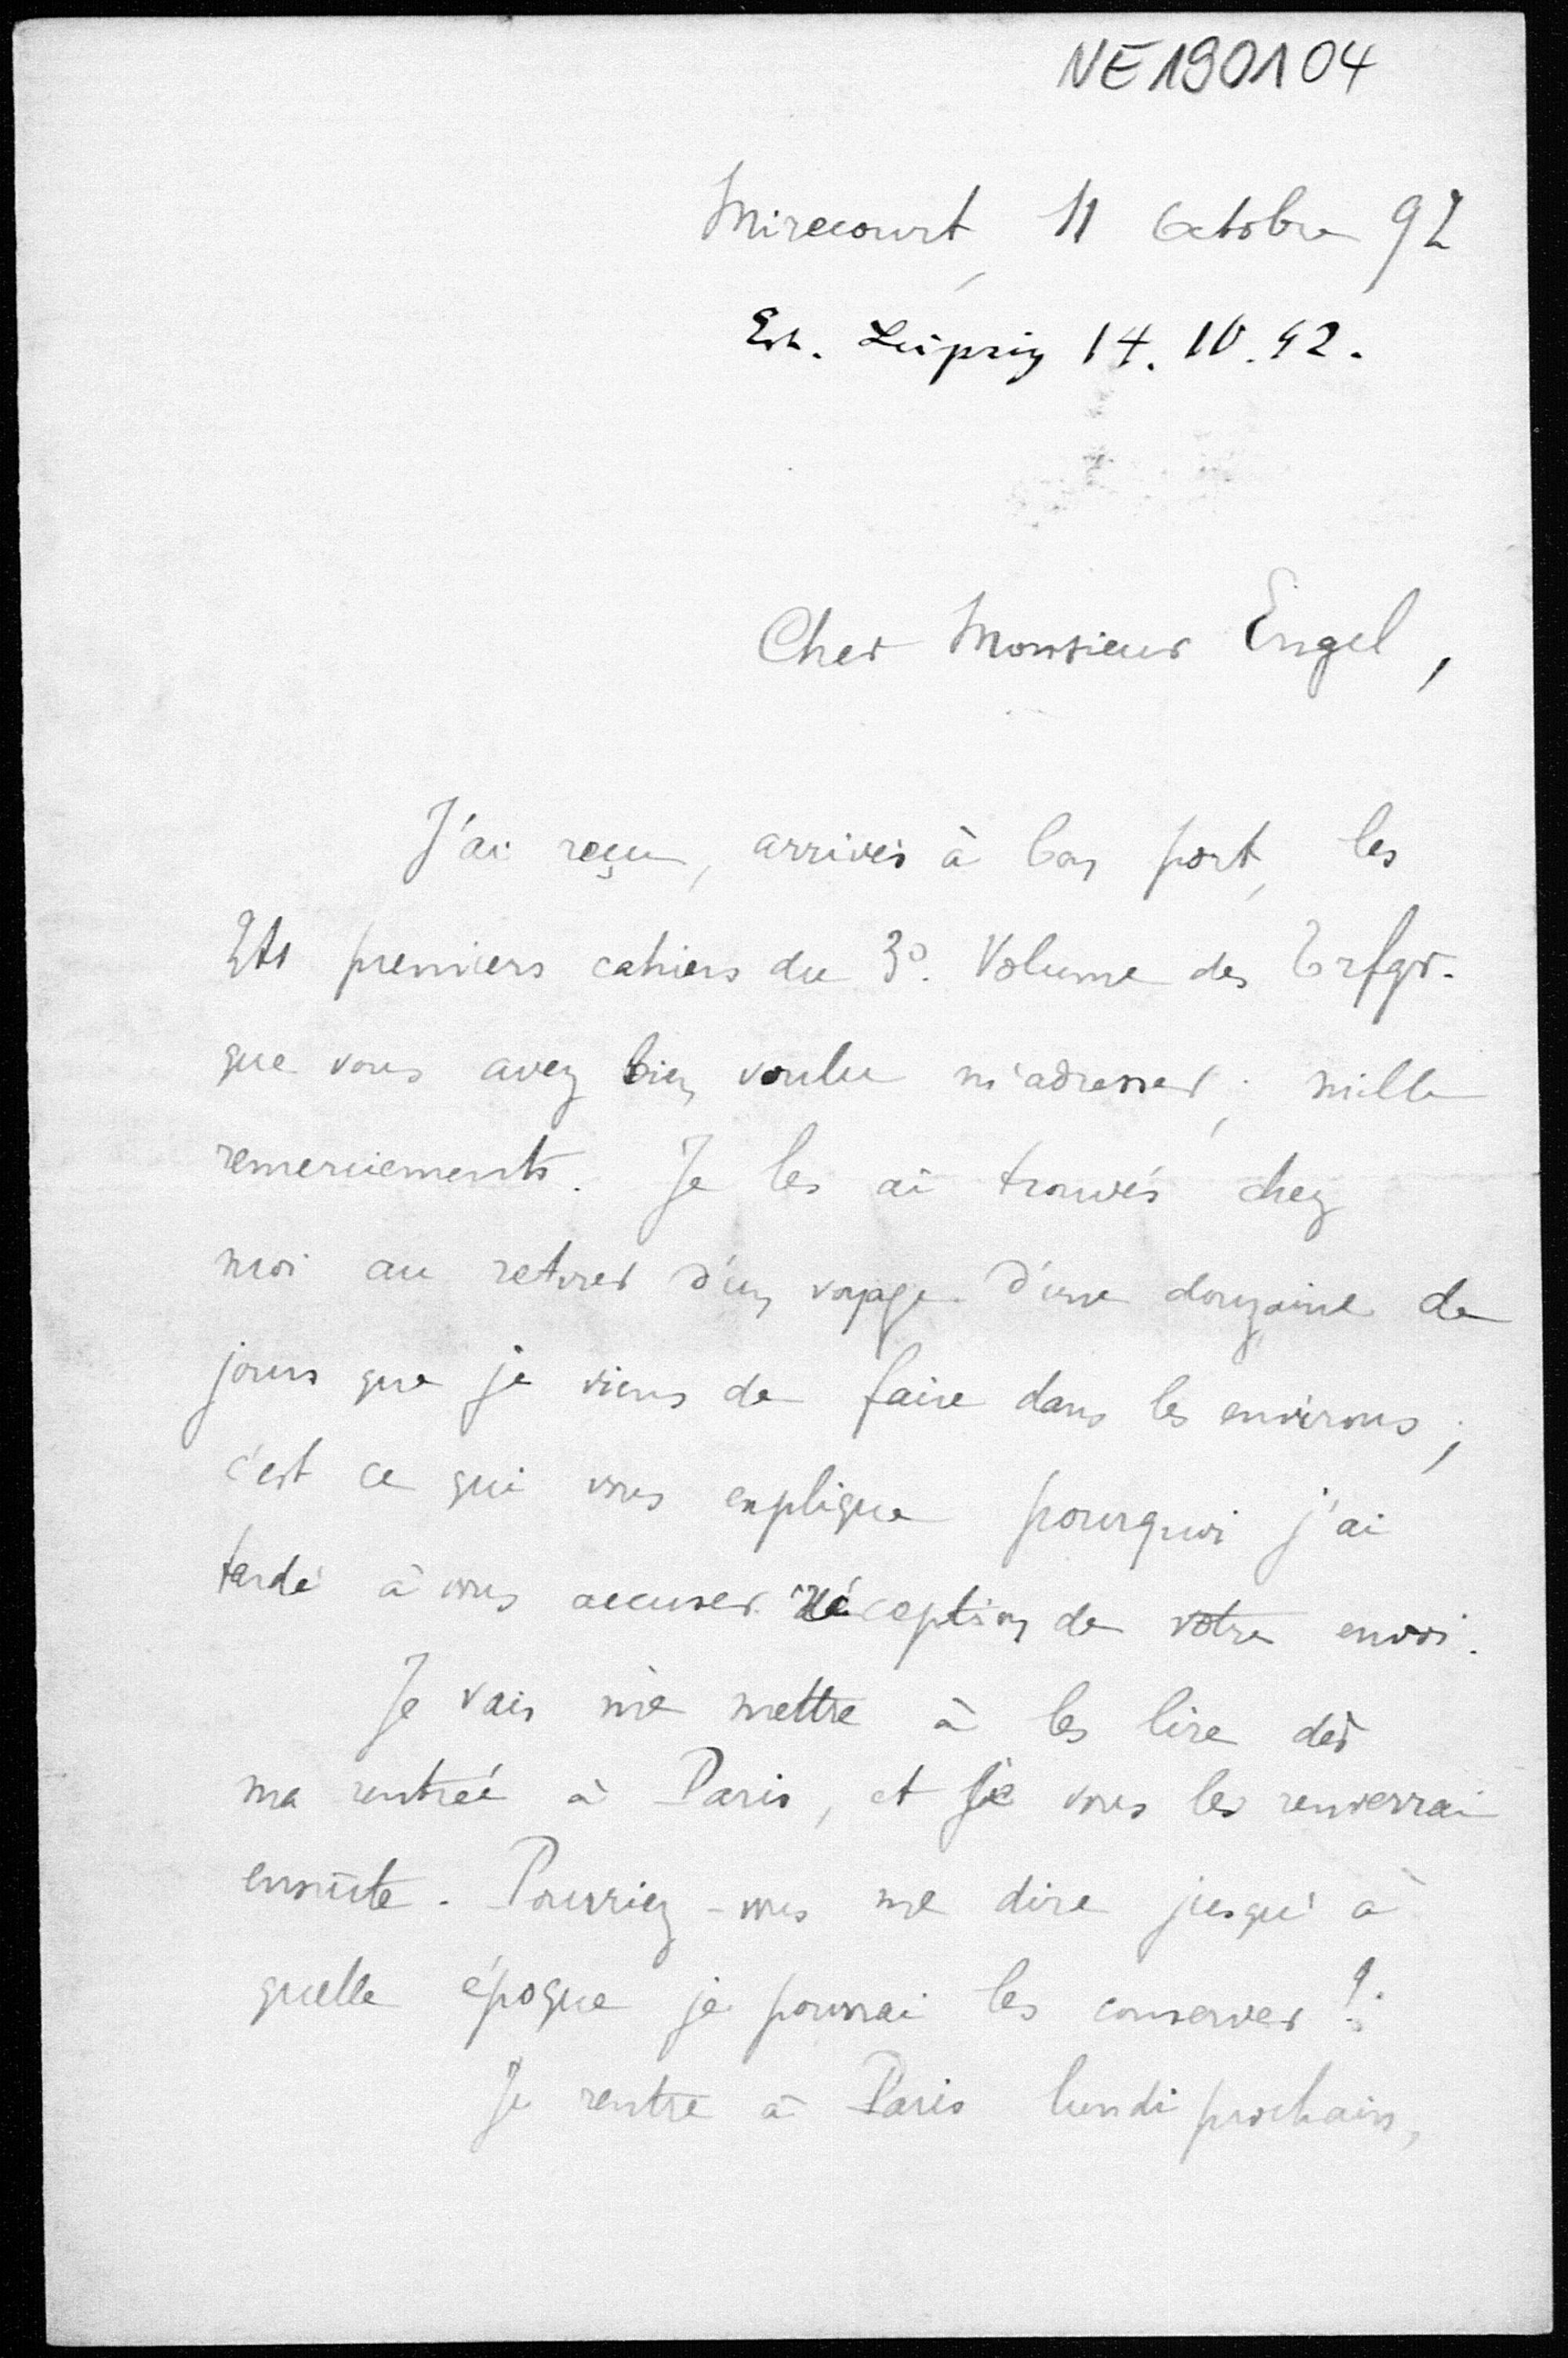 NE190104
Mirecourt, 11 Octobre 92
Erh. Leipzig 14.10.92.
Cher Monsieur Engel,
J'ai reçu, arrivés à bon port, les
premiers cahiers du 3º. Volume des Trfgr.
que vous avez bien voulu m'adresser; mille
remerciements. Je les ai trouvés chez
moi au retour d'un voyage d'une douzaine de
jours que je viens de faire dans les environs;
c'est ce qui vous explique pourquoi j'ai
tardé à vous accuser réception de votre envoi.
Je vais me mettre à les lire dès
ma rentrée à Paris, et je vous les renverrai
ensuite. Pourriez-vous me dire jusqu'à
quelle époque je pourrai les conserver?
Je rentre à Paris lundi prochain,